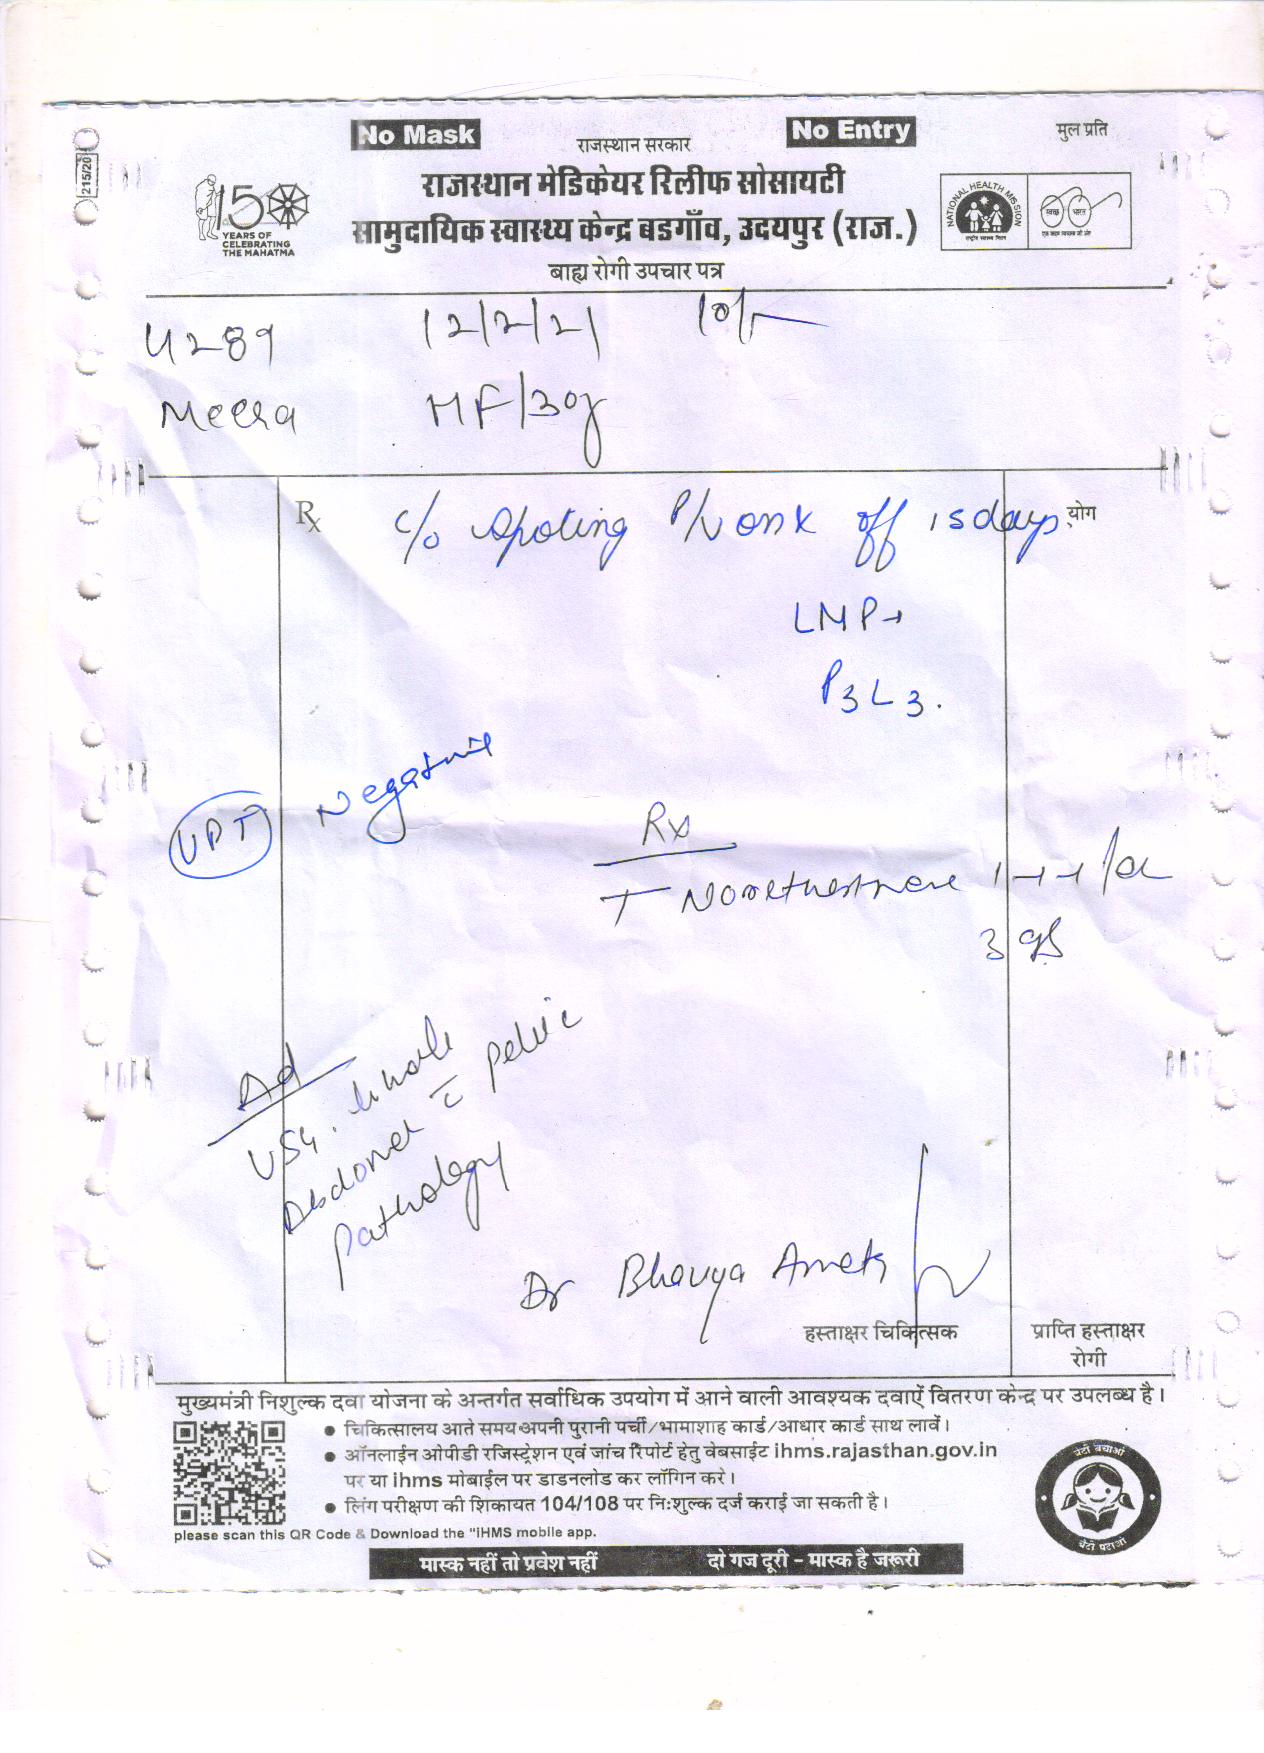 215/20
No Mask
No Entry
मुल प्रति
राजस्थान सरकार
राजस्थान मेडिकेयर रिलीफ सोसायटी
सामुदायिक स्वास्थ्य केन्द्र बडगाँव, उदयपुर (राज.)
बाह्य रोगी उपचार पत्र
150
YEARS OF
CELEBRATING
THE MAHATMA
NATIONAL HEALTH MISSION
राष्ट्रीय स्वास्थ्य मिशन
स्वच्छ भारत
एक कदम स्वच्छता की ओर
4289 12/2/21 10/-
Meera HF/30y
Rx
c/o spoting P/V on & off 15 days
योग
LMP→
P3L3.
UPT Negative
Rx
T 1-1-1/d
3
Ad
USG. whole
Abdomen c pelvic
pathology
Dr Bhavya
हस्ताक्षर चिकित्सक
प्राप्ति हस्ताक्षर
रोगी
मुख्यमंत्री निशुल्क दवा योजना के अन्तर्गत सर्वाधिक उपयोग में आने वाली आवश्यक दवाऐं वितरण केन्द्र पर उपलब्ध है।
● चिकित्सालय आते समय अपनी पुरानी पर्ची/भामाशाह कार्ड/आधार कार्ड साथ लावें।
● ऑनलाईन ओपीडी रजिस्ट्रेशन एवं जांच रिपोर्ट हेतु वेबसाईट ihms.rajasthan.gov.in
पर या ihms मोबाईल पर डाडनलोड कर लॉगिन करे।
● लिंग परीक्षण की शिकायत 104/108 पर नि:शुल्क दर्ज कराई जा सकती है।
please scan this QR Code & Download the "iHMS mobile app.
बेटी बचाओ
बेटी पढाओ
मास्क नहीं तो प्रवेश नहीं
दो गज दूरी - मास्क है जरूरी